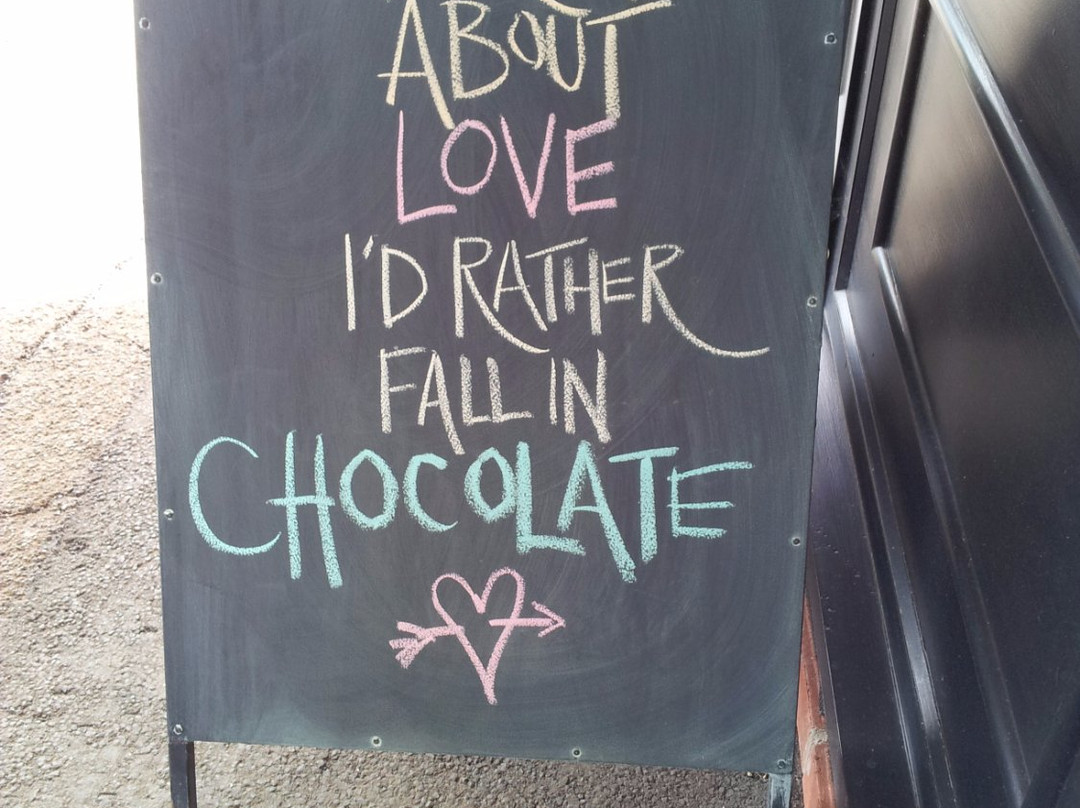 ABOUT
LOVE
I'D RATHER
FALL IN
CHOCOLATE